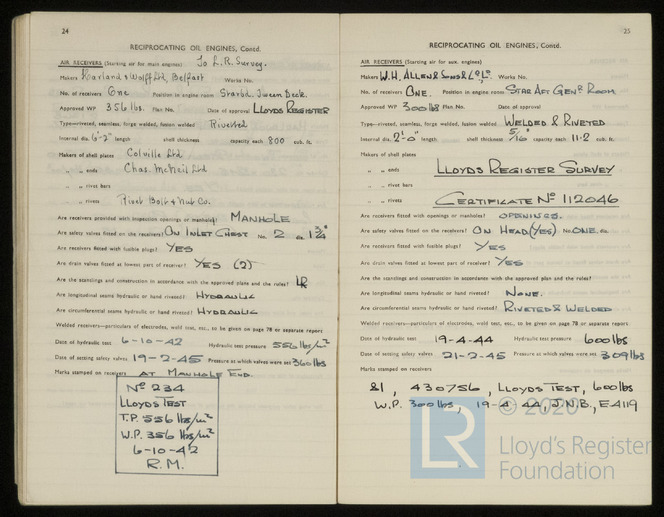 24
RECIPROCATING OIL ENGINES, Contd.
AIR RECEIVERS (Starting air for main engines) To L.R. Survey.
Makers Harland & Wolff Ltd, Belfast Works No.
No. of receivers One Position in engine room Starbd. Tween Deck.
Approved WP 356 lbs. Plan No. Date of approval LLOYDS REGISTER
Type—riveted, seamless, forge welded, fusion welded Rivetted
Internal dia. 6'-2" length shell thickness capacity each 800 cub. ft.
Makers of shell plates Colville Ltd
„ „ ends Chas. McNeil Ltd
„ „ rivet bars
„ „ rivets Rivet Bolt & Nut Co.
Are receivers provided with inspection openings or manholes? MANHOLE
Are safety valves fitted on the receivers? ON INLET CHEST No. 2 dia. 1 3/4"
Are receivers fitted with fusible plugs? YES
Are drain valves fitted at lowest part of receiver? YES (2)
Are the scantlings and construction in accordance with the approved plans and the rules? LR
Are longitudinal seams hydraulic or hand riveted? HYDRAULIC
Are circumferential seams hydraulic or hand riveted? HYDRAULIC
Welded receivers—particulars of electrodes, weld test, esc., to be given on page 78 or separate report
Date of hydraulic test 6-10-42 Hydraulic test pressure 556 lbs/m²
Date of setting safety valves 19-2-45 Pressure at which valves were set 360 lbs
Marks stamped on receivers AT MANHOLE END.
Nº 234
LLOYDS TEST
T.P. 556 lbs/m²
W.P. 356 lbs/m²
6-10-42
R.M.
25
RECIPROCATING OIL ENGINES, Contd.
AIR RECEIVERS (Starting air for aux. engines)
Makers W.H. ALLEN & SONS & Co Ld. Works No.
No. of receivers ONE. Position in engine room STAR AFT GENR ROOM
Approved WP 300 lB Plan No. Date of approval
Type—riveted, seamless, forge welded, fusion welded WELDED & RIVETED
Internal dia. 2'-0" length shell thickness 5/16" capacity each 11·2 cub. ft.
Makers of shell plates
„ „ ends LLOYDS REGISTER SURVEY
„ „ rivet bars
„ „ rivets CERTIFICATE Nº 112046
Are receivers fitted with openings or manholes? OPENINGS.
Are safety valves fitted on the receivers? ON HEAD (YES) No. ONE. dia.
Are receivers fitted with fusible plugs? YES
Are drain valves fitted at lowest part of receiver? YES
Are the scantlings and construction in accordance with the approved plan and the rules?
Are longitudinal seams hydraulic or hand riveted? NONE.
Are circumferential seams hydraulic or hand riveted? RIVETED & WELDED
Welded receivers—particulars of electrodes, weld test, esc., to be given on page 78 or separate report.
Date of hydraulic test 19-4-44 Hydraulic test pressure 600 lbs
Date of setting safety valves 21-2-45 Pressure at which valves were set 309 lbs
Marks stamped on receivers
&1, 430756, LLOYDS TEST, 600 lbs
W.P. 300 lbs, 19-4 44, J.N.B., E4119
© 2020
LR
Lloyd's Register
Foundation